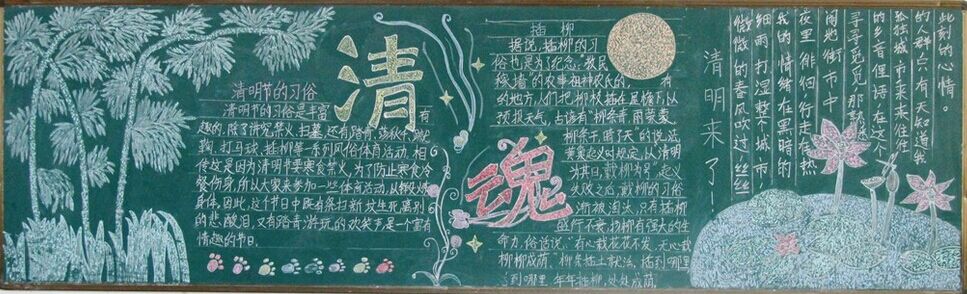 清
魂
清明节的习俗
清明节的习俗是丰富有
趣的,除了讲究禁火、扫墓,还有踏青、荡秋千、蹴
鞠、打马球、插柳等一系列风俗体育活动。相
传这是因为清明节要寒食禁火,为了防止寒食冷
餐伤身,所以大家来参加一些体育活动,以锻炼
身体。因此,这个节日中既有祭扫新坟生死离别
的悲酸泪,又有踏青游玩的欢笑声,是一个富有
情趣的节日。
插柳
据说,插柳的习
俗也是为了纪念“教民
稼穑”的农事祖神农氏的。有
的地方,人们把柳枝插在屋檐下,以
预报天气,古谚有“柳条青,雨蒙蒙;
柳条干,晴了天”的说法。
黄巢起义时规定,以“清明
为期,戴柳为号”。起义
失败之后,戴柳的习俗
渐被淘汰,只有插柳
盛行不衰。杨柳有强大的生
命力,俗话说:“有心栽花花不发,无心栽
柳柳成荫。”柳条插土就活,插到哪里,
到哪里,年年插柳,处处成荫。
清明来了
微微的春风吹过,丝丝
细雨打湿整个城市,
我的情绪在黑暗的
夜里徘徊,行走在热
闹地街市中,
寻寻觅觅,那熟悉
的乡音俚语,在这个
孤独城市来来往往
的人群点,只有天知道我
此刻的心情。